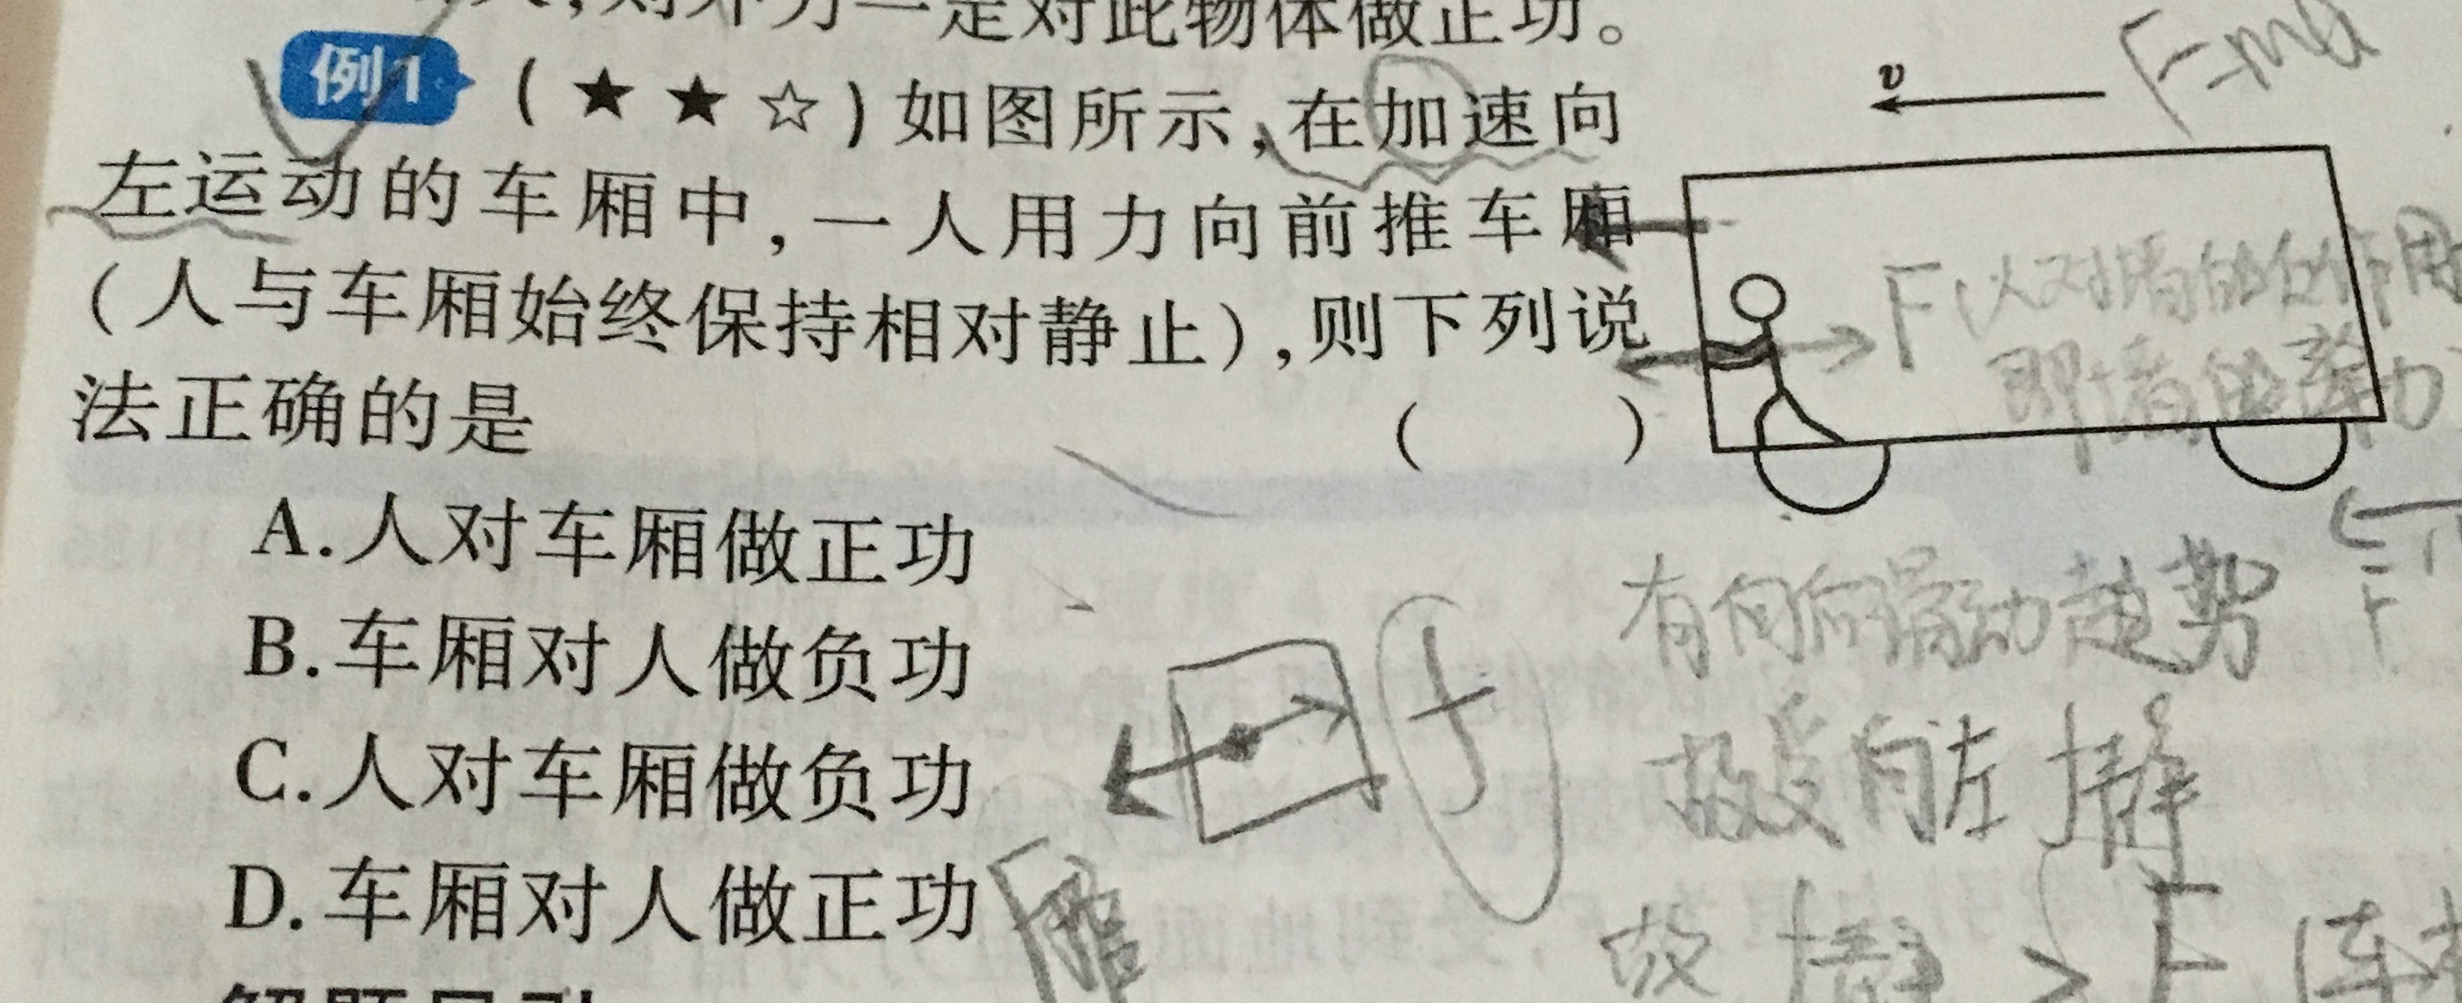 则外力一定对此物体做正功。
例1 (★★☆)如图所示,在加速向
左运动的车厢中,一人用力向前推车厢
(人与车厢始终保持相对静止),则下列说
法正确的是 ( )
A.人对车厢做正功
B.车厢对人做负功
C.人对车厢做负功
D.车厢对人做正功
v
F=ma
F(人对墙的作用
即墙的
F
有向后滑动趋势
故受向左f静
f
故f静>F